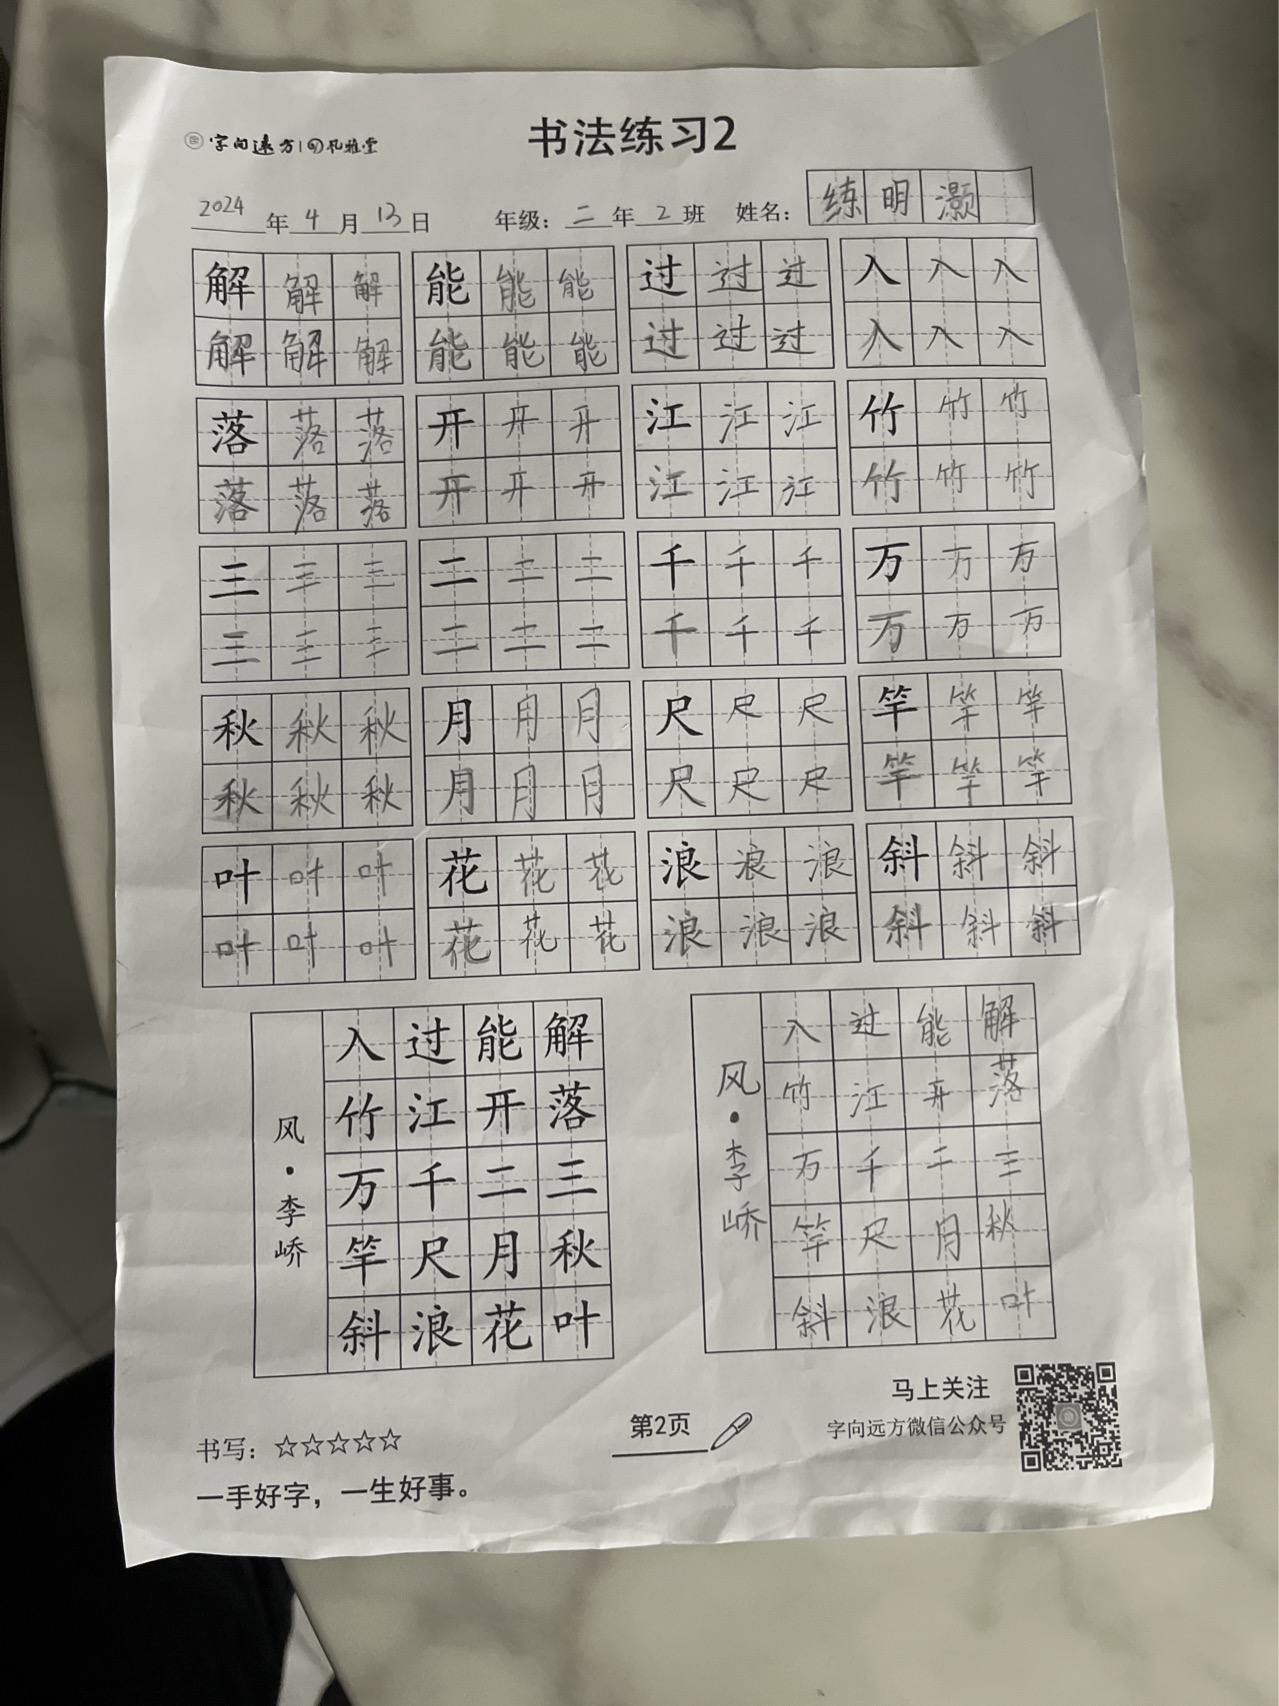 字向远方 风雅堂
书法练习2
2024年4月13日 年级：二年2班 姓名：练明灏
解解解 能能能 过过过 入入入
解解解 能能能 过过过 入入入
落落落 开开开 江江江 竹竹竹
落落落 开开开 江江江 竹竹竹
三三三 二二二 千千千 万万万
三三三 二二二 千千千 万万万
秋秋秋 月月月 尺尺尺 竿竿竿
秋秋秋 月月月 尺尺尺 竿竿竿
叶叶叶 花花花 浪浪浪 斜斜斜
叶叶叶 花花花 浪浪浪 斜斜斜
风·李峤
解落三秋叶
能开二月花
过江千尺浪
入竹万竿斜
风·李峤
解落三秋叶
能开二月花
过江千尺浪
入竹万竿斜
书写：☆☆☆☆☆
一手好字，一生好事。
第2页
马上关注
字向远方微信公众号